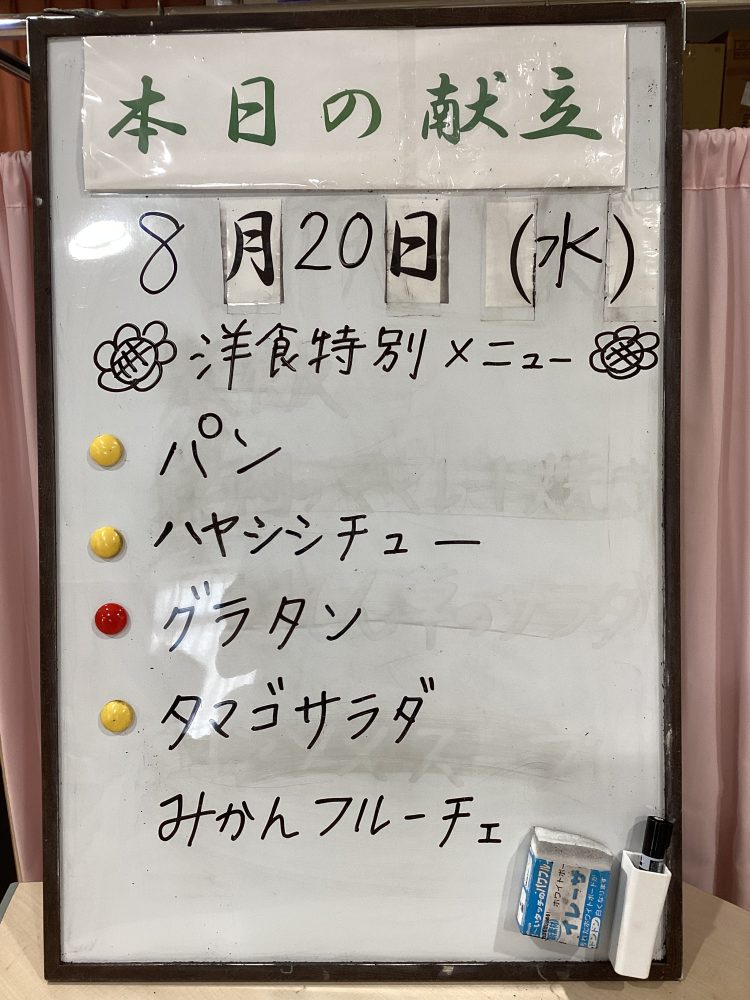 本日の献立
8月20日 (水)
洋食特別メニュー
パン
ハヤシシチュー
グラタン
タマゴサラダ
みかんフルーチェ
イレーザ